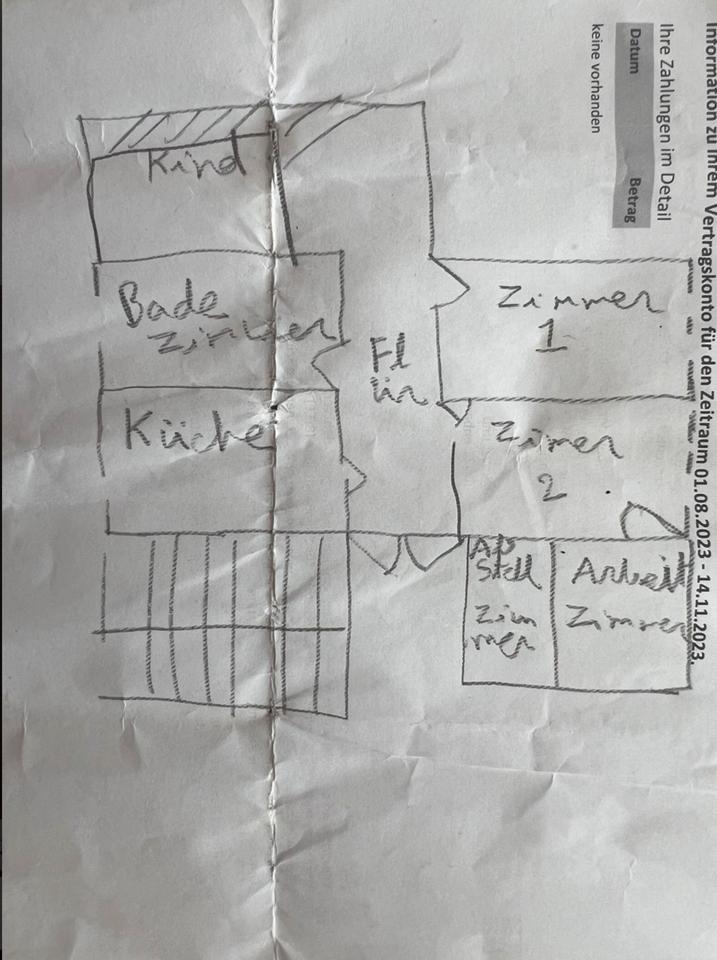 Information zu Ihrem Vertragskonto für den Zeitraum 01.08.2023 - 14.11.2023.
Ihre Zahlungen im Detail
Datum Betrag
keine vorhanden
Kind
Bade
Zimmer
Küche
Fl
ur
Zimmer
1
Zimer
2
Ap
Stell
Zim
mer
Arbeit
Zimmer